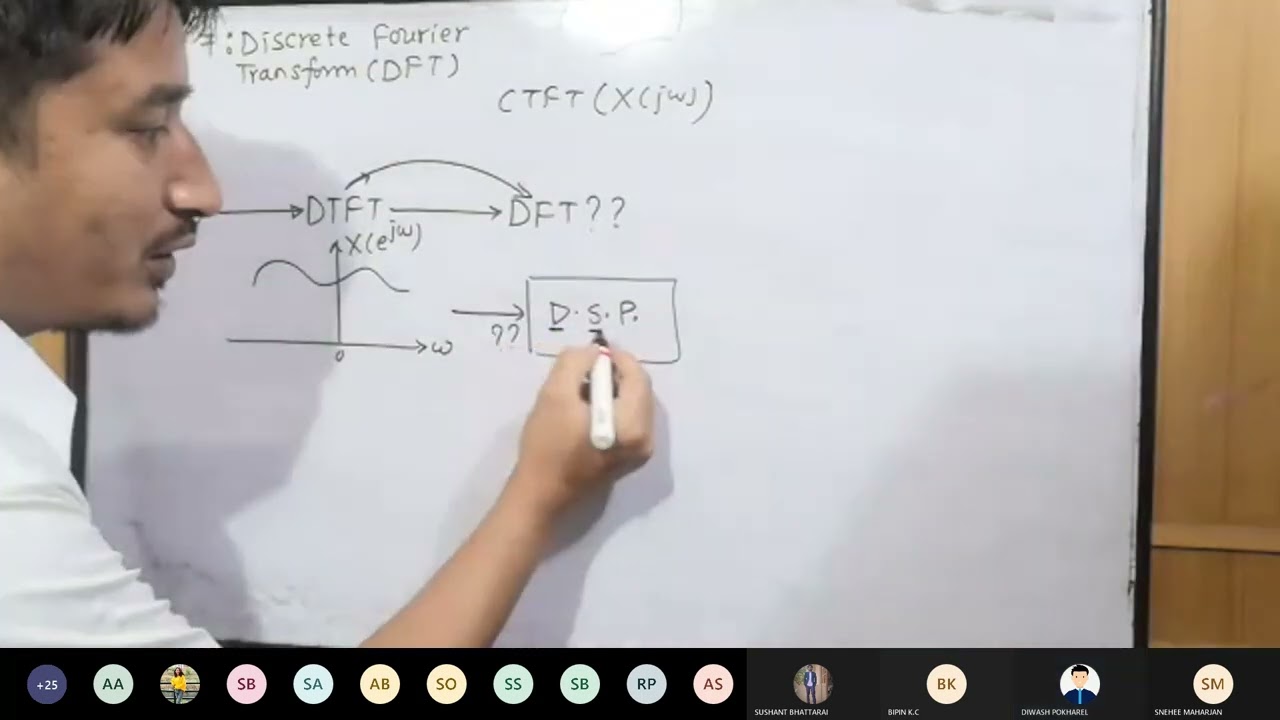 7: Discrete Fourier
Transform (DFT)
CTFT (X(jω))
DTFT
DFT??
X(e^jω)
D.S.P.
??
ω
0
+25
AA
SB
SA
AB
SO
SS
SB
RP
AS
BK
SM
SUSHANT BHATTARAI
BIPIN K.C
DIWASH POKHAREL
SNEHEE MAHARJAN